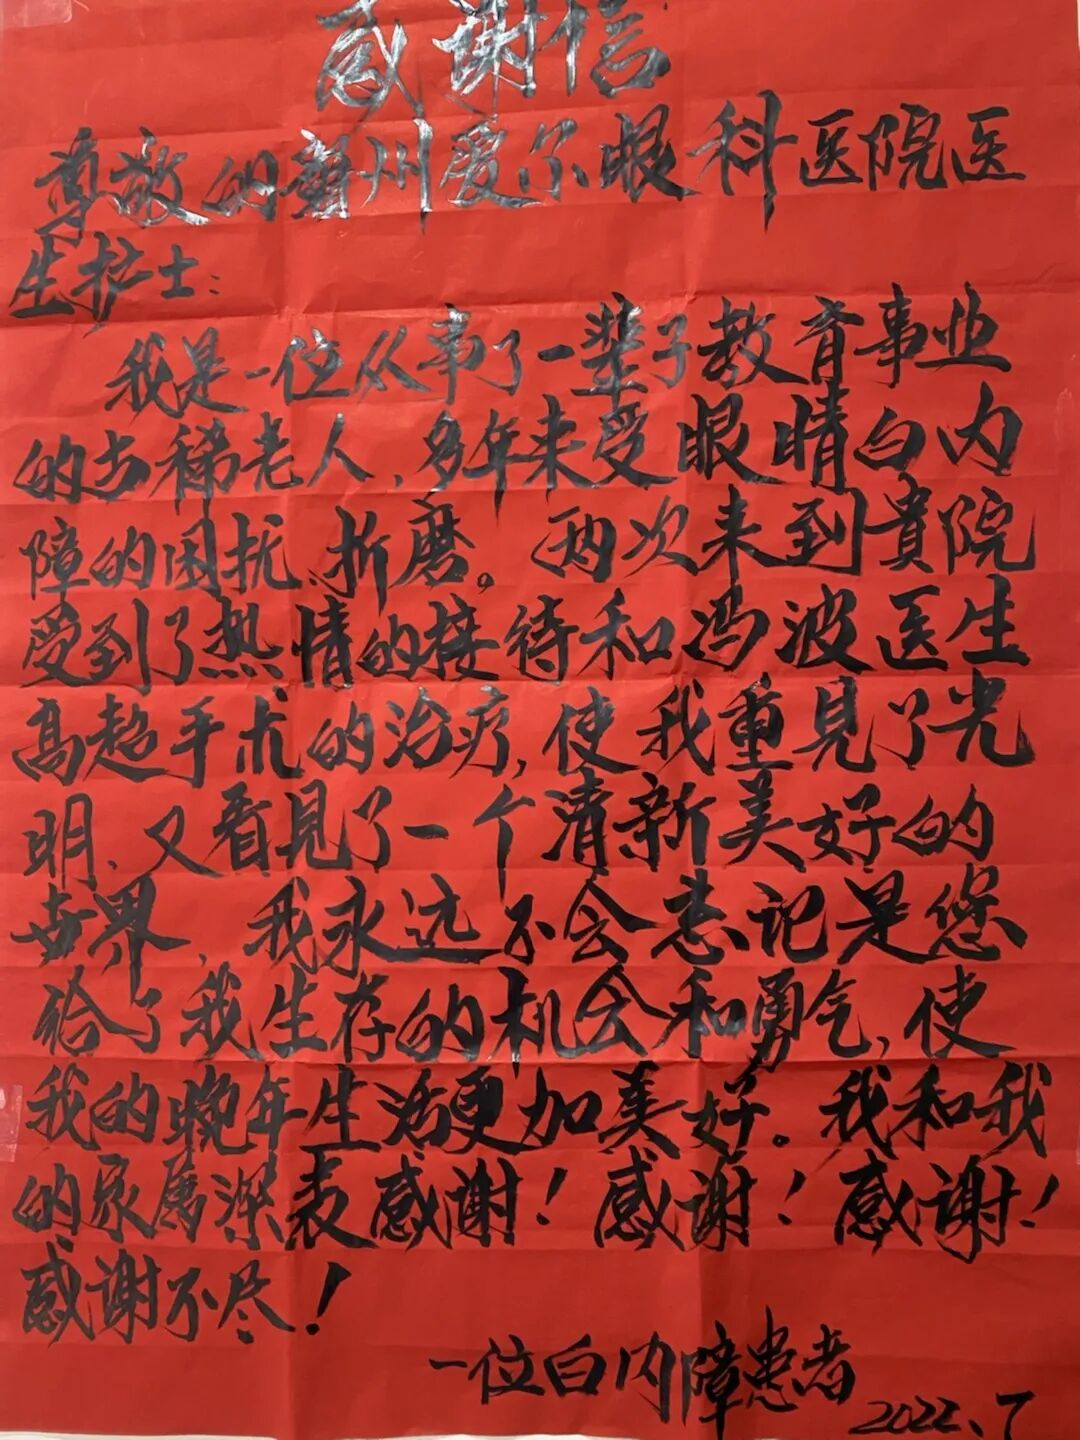 感谢信
尊敬的州爱尔眼科医院医
生护士：
我是一位从事了一辈子教育事业
的古稀老人，多年来受眼睛白内
障的困扰、折磨。两次来到貴院
受到了热情的接待和冯波医生
高超手术的治疗，使我重見了光
明，又看見了一个清新美好的
世界，我永远不会忘记是您
给了我生存的机会和勇气，使
我的晚年生活更加美好。我和我
的家属深表感谢！感谢！感谢！
感谢不尽！
一位白内障患者
2022、7